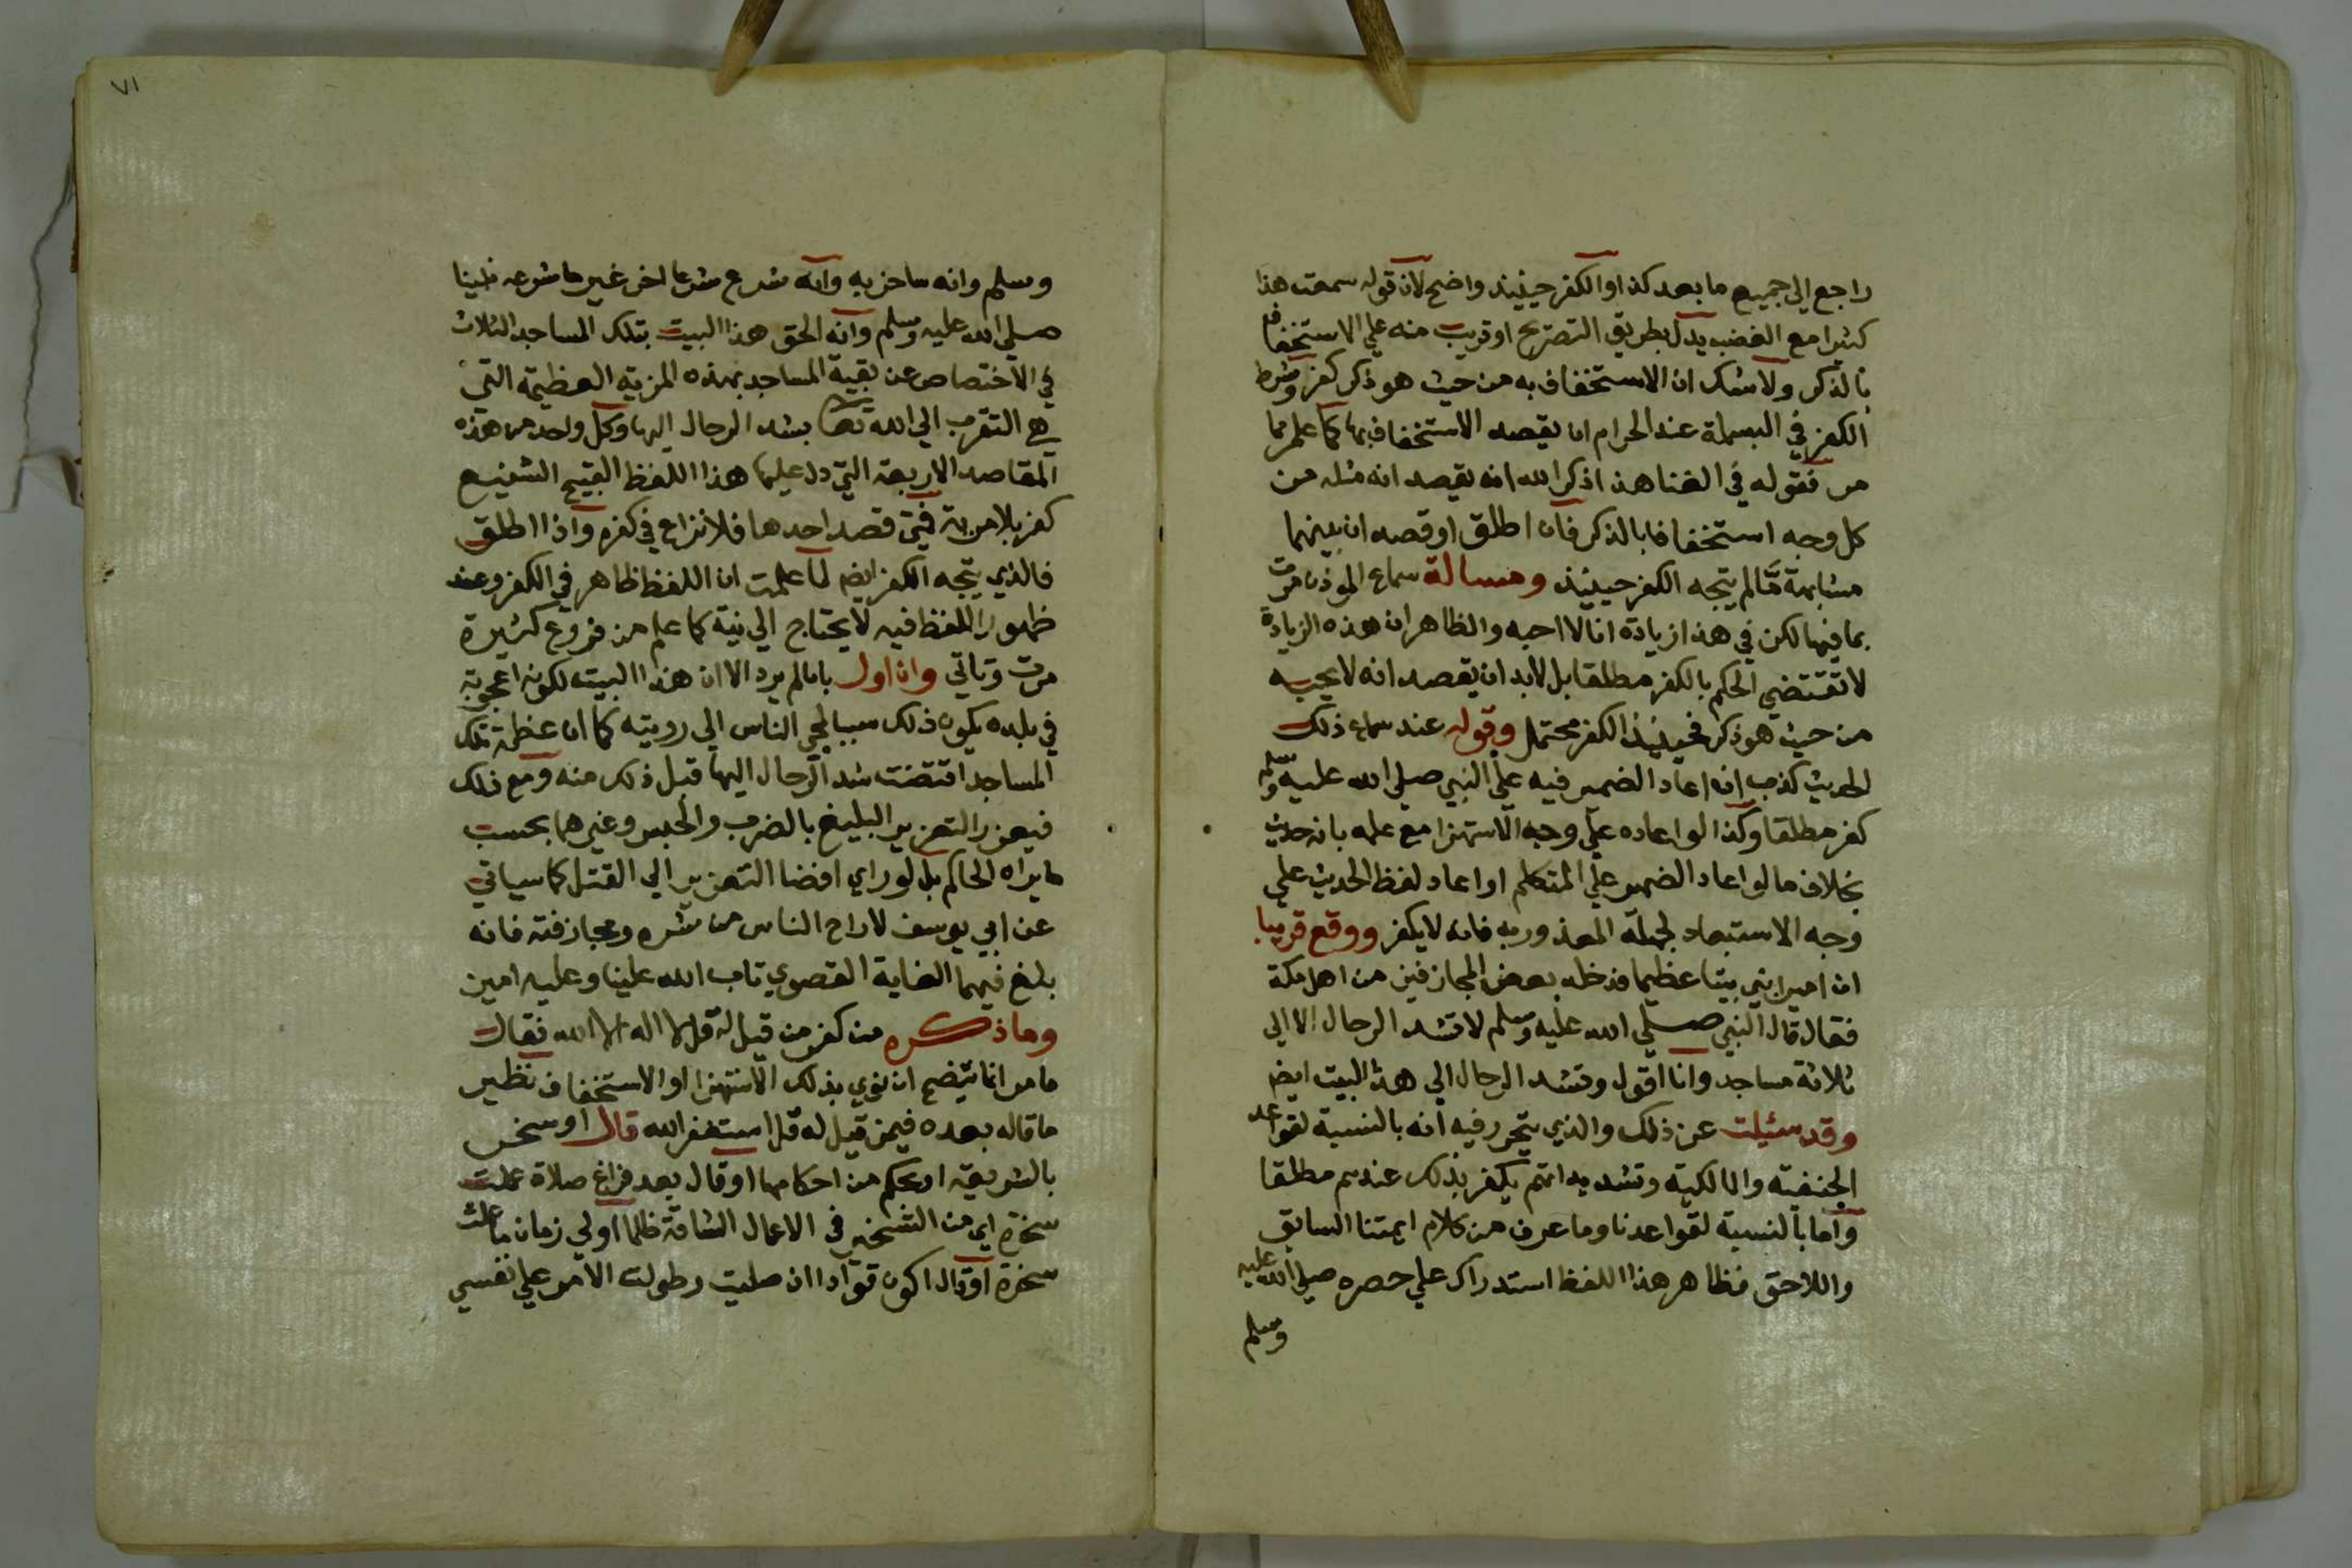 راجع الي جميع ما بعد كذا والكفر حينيذ واضح لان قوله سمعت هذا
كثيرا مع الغضب يدل بطريق التصريح او قريب منه علي الاستخفاف
بالذكر ولا شك ان الاستخفاف به من حيث هو ذكر كفر وشرط
الكفر في البسملة عند الحرام ان يقصد الاستخفاف بها كما علم مما
مر فقوله في الغنا هذا ذكر الله انه يقصد انه مثله من
كل وجه استخفافا بالذكر فان اطلق او قصد ان بينهما
مشابهة مّا لم يتجه الكفر حينيذ ومسالة سماع الموذن مرت
بما فيها لكن في هذا زيادة انا لا احبه والظاهر ان هذه الزيادة
لا تقتضي الحكم بالكفر مطلقا بل لابد ان يقصد انه لا يحبه
من حيث هو ذكر فحينيذ الكفر محتمل وقوله عند سماع ذلك
الحديث كذب انه اعاد الضمير فيه علي النبي صلي الله عليه وسلم
كفر مطلقا وكذا لو اعاده علي وجه الاستهزا مع علمه بانه حديث
بخلاف ما لو اعاد الضمير علي المتكلم او اعاد لفظ الحديث علي
وجه الاستبعاد لجهله المعذور به فانه لا يكفر ووقع قريبا
ان اميرا بني بيتا عظيما فدخله بعض المجازفين من اهل مكة
فقال قال النبي صلي الله عليه وسلم لا تشد الرحال الا الي
ثلاثة مساجد وانا اقول وتشد الرحال الي هذا البيت ايضم
وقد سئيلت عن ذلك والذي يتحرر فيه انه بالنسبة لقواعد
الحنفية والمالكية وتشديداتهم يكفر بذلك عندهم مطلقا
واما بالنسبة لقواعدنا وما عرف من كلام ايمتنا السابق
واللاحق فظاهر هذا اللفظ استدراك علي حصره صلي الله عليه
وسلم
٧١
وسلم وانه ساخر به وانه شرع شرعا اخر غير ما شرعه نبينا
صلي الله عليه وسلم وانه الحق هذا البيت بتلك المساجد الثلاث
في الاختصاص عن بقية المساجد بهذه المزية العظيمة التي
هي التقرب الي الله تعا بشد الرحال اليها وكل واحد من هذه
المقاصد الاربعة التي دل عليها هذا اللفظ القبيح الشنيع
كفر بلا مرية فمتي قصد احدها فلا نزاع في كفره واذا اطلق
فالذي يتجه الكفر ايضم لما علمت ان اللفظ ظاهر في الكفر وعند
ظهور اللفظ فيه لا يحتاج الي نية كما علم من فروع كثيرة
مرت وتاتي وان اول بانه لم يرد الا ان هذا البيت لكونه اعجوبة
في بلده يكون ذلك سببا لمجي الناس الي رويته كما ان عظمة تلك
المساجد اقتضت شد الرحال اليها قبل ذلك منه ومع ذلك
فيعزر التعزير البليغ بالضرب والحبس وغيرهما بحسب
ما يراه الحاكم بل لو راي افضا التعزير الي القتل كما سياتي
عن ابي يوسف لاراح الناس من شره ومجازفته فانه
بلغ فيهما الغاية القصوي تاب الله علينا وعليه امين
وما ذكره من كفر من قيل له قل لا اله الا الله فقال
ما مر انما يتضح ان نوي بذلك الاستهزا او الاستخفاف نظير
ما قاله بعده فيمن قيل له قل استغفر الله قال او سخر
بالشريعة او بحكم من احكامها او قال بعد فراغ صلاة عملت
سخرة اي من التسخير في الاعمال الشاقة ظلما او لي زمان ما عملت
سخرة او قال اكون قوادا ان صليت وطولت الامر علي نفسي